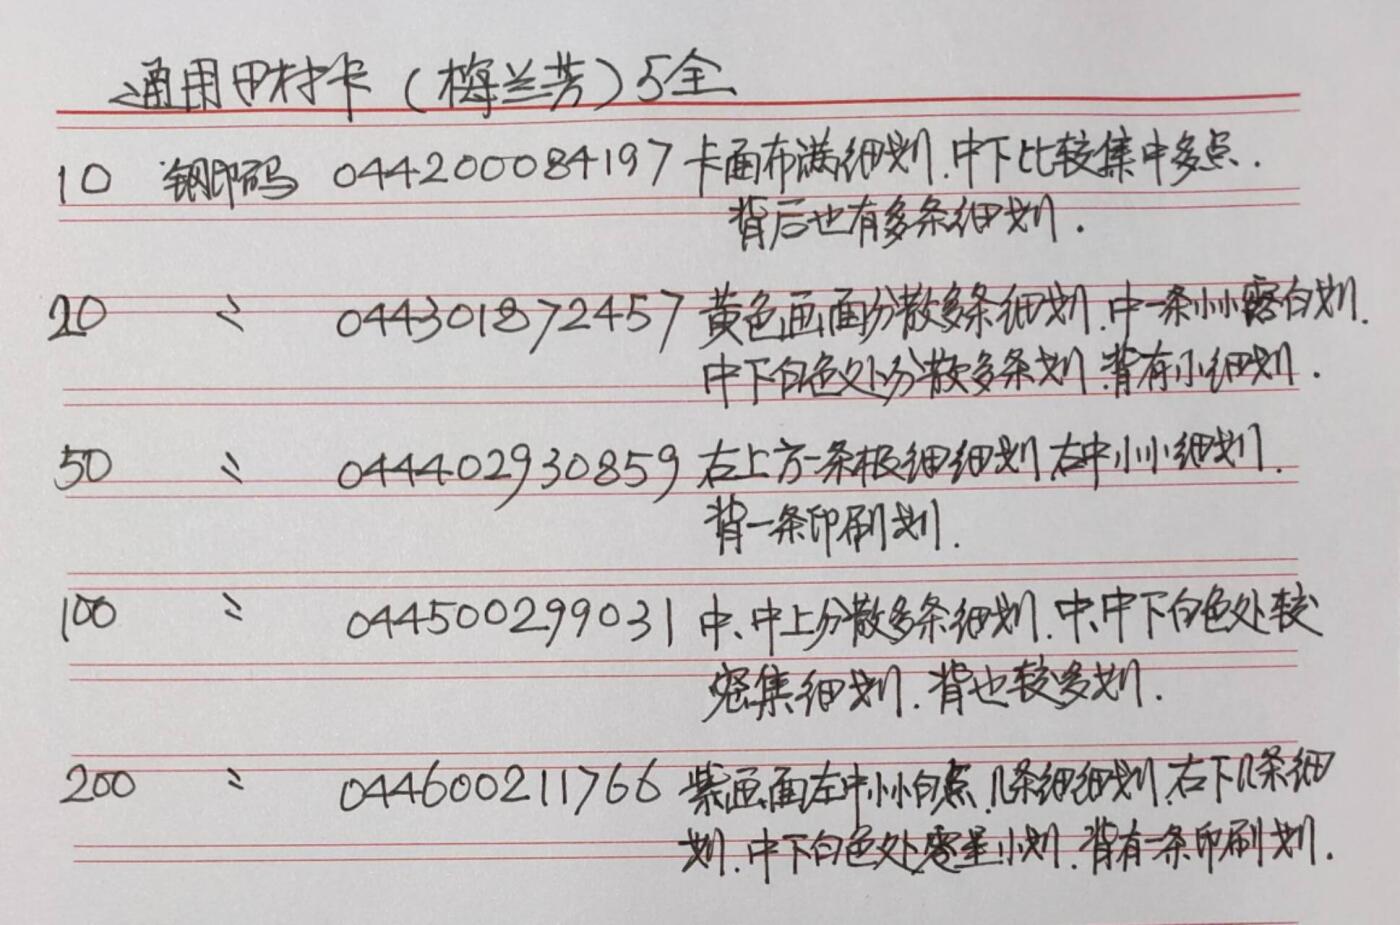 通用田村卡（梅兰芳）5全
10 钢印码 044200084197 卡面布满细划.中下比较集中多点.
背后也有多条细划.
20 〃 044301872457 黄色画面分散多条细划.中一条小小露白划.
中下白色处分散多条划.背有小细划.
50 〃 044402930859 右上方一条极细细划.右中小小细划.
背一条印刷划.
100 〃 044500299031 中、中上分散多条细划.中、中下白色处较
密集细划.背也较多划.
200 〃 044600211766 紫画面左中小小白点.几条细细划.右下几条细
划.中下白色处零星小划.背有一条印刷划.